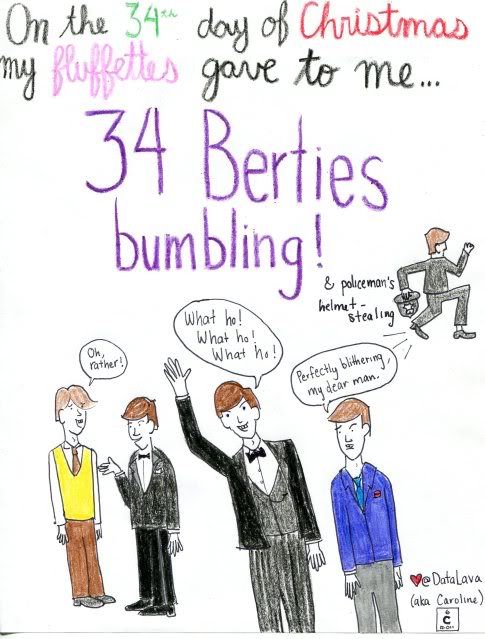 On the 34th day of Christmas
my fluffettes gave to me...
34 Berties
bumbling!
& policeman's
helmet-
stealing
What ho!
What ho!
What ho!
Oh,
rather!
Perfectly blithering,
my dear man.
@DataLava
(aka Caroline)
6
C
12.011